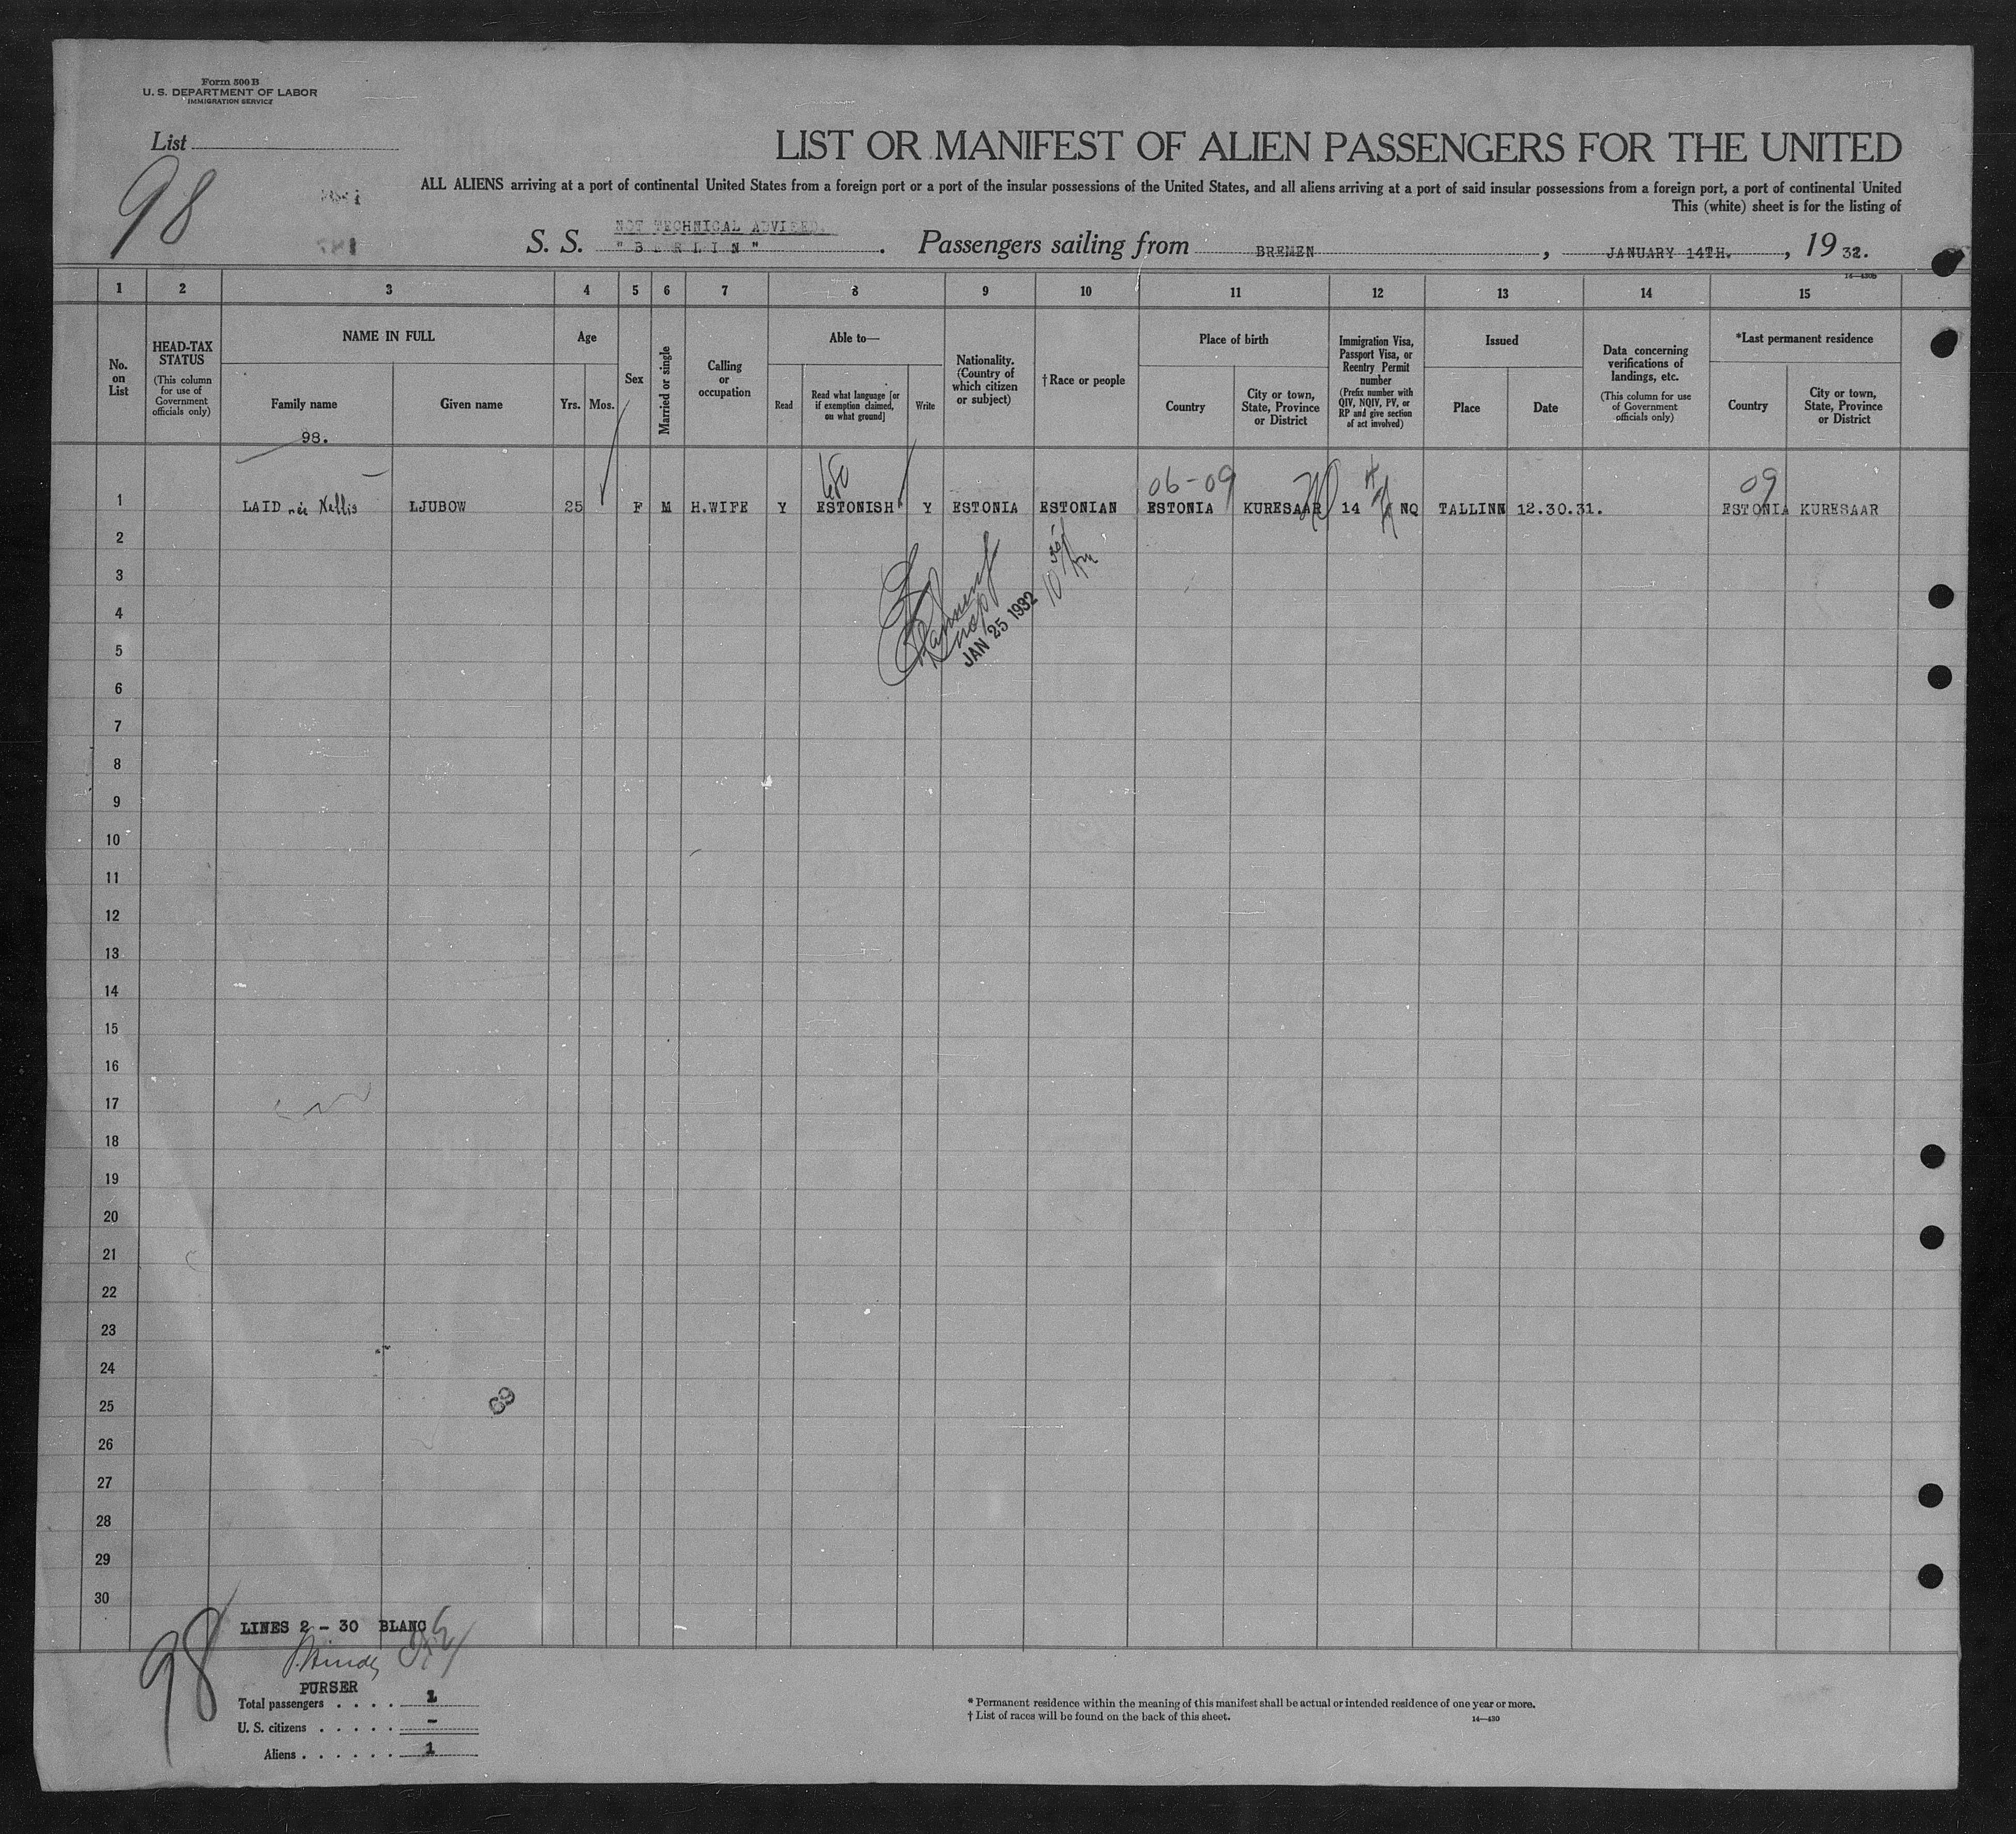 Form 500 B
U. S. DEPARTMENT OF LABOR
IMMIGRATION SERVICE
List
98
LIST OR MANIFEST OF ALIEN PASSENGERS FOR THE UNITED
ALL ALIENS arriving at a port of continental United States from a foreign port or a port of the insular possessions of the United States, and all aliens arriving at a port of said insular possessions from a foreign port, a port of continental United
This (white) sheet is for the listing of
NOT TECHNICAL ADVISED.
S. S. "BERLIN". Passengers sailing from BREMEN, JANUARY 14TH., 1932.
14—430b
1 2 3 4 5 6 7 8 9 10 11 12 13 14 15
No. on List
HEAD-TAX STATUS
(This column for use of Government officials only)
NAME IN FULL
Family name
Given name
98.
Age
Yrs. Mos.
Sex
Married or single
Calling or occupation
Able to—
Read
Read what language [or if exemption claimed, on what ground]
Write
Nationality. (Country of which citizen or subject)
†Race or people
Place of birth
Country
City or town, State, Province or District
Immigration Visa, Passport Visa, or Reentry Permit number
(Prefix number with QIV, NQIV, PV, or RP and give section of act involved)
Issued
Place
Date
Data concerning verifications of landings, etc.
(This column for use of Government officials only)
*Last permanent residence
Country
City or town, State, Province or District
680 06-09 09
1 LAID née Nellis LJUBOW 25 F M H.WIFE Y ESTONISH Y ESTONIA ESTONIAN ESTONIA KURESAAR 14 NQ TALLINN 12.30.31. ESTONIA KURESAAR
2
3
4
JAN 25 1932
5
6
7
8
9
10
11
12
13
14
15
16
17
18
19
20
21
22
23
24
25
69
26
27
28
29
30
98
LINES 2 - 30 BLANC
PURSER
Total passengers . . . . 1
U. S. citizens . . . . . -
Aliens . . . . . . 1
* Permanent residence within the meaning of this manifest shall be actual or intended residence of one year or more.
† List of races will be found on the back of this sheet.
14—430